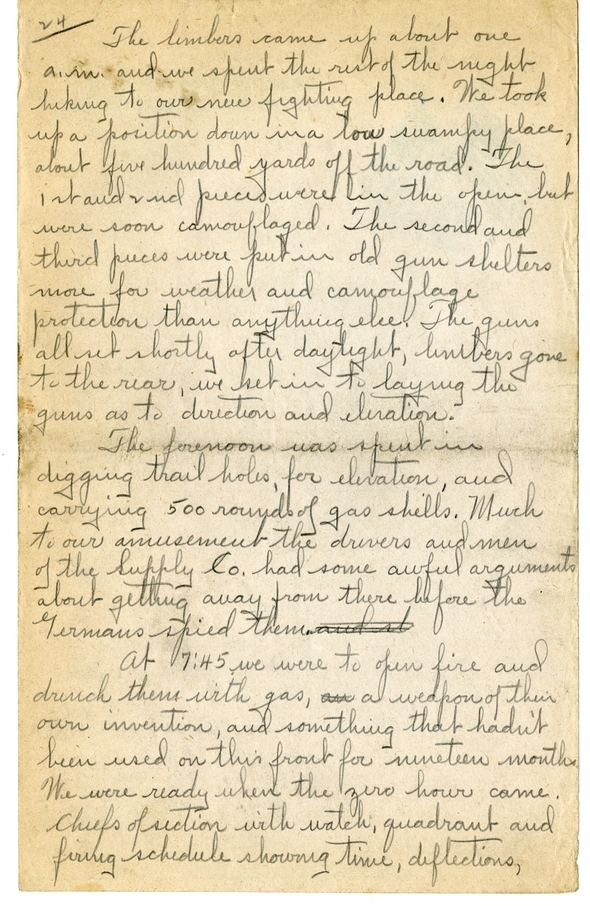 24
The limbers came up about one
a.m. and we spent the rest of the night
hiking to our new fighting place. We took
up a position down in a low swampy place,
about five hundred yards off the road. The
1st and 2nd pieces were in the open, but
were soon camouflaged. The second and
third pieces were put in old gun shelters
more for weather and camouflage
protection than anything else. The guns
all set shortly after daylight, limbers gone
to the rear, we set in to laying the
guns as to direction and elevation.
The forenoon was spent in
digging trail holes, for elevation, and
carrying 500 rounds of gas shells. Much
to our amusement the drivers and men
of the Supply Co. had some awful arguments
about getting away from there before the
Germans spied them. and st
At 7:45 we were to open fire and
drench them with gas, an a weapon of their
own invention, and something that hadn't
been used on this front for nineteen months.
We were ready when the zero hour came.
Chiefs of section with watch, quadrant and
firing schedule showing time, deflections,